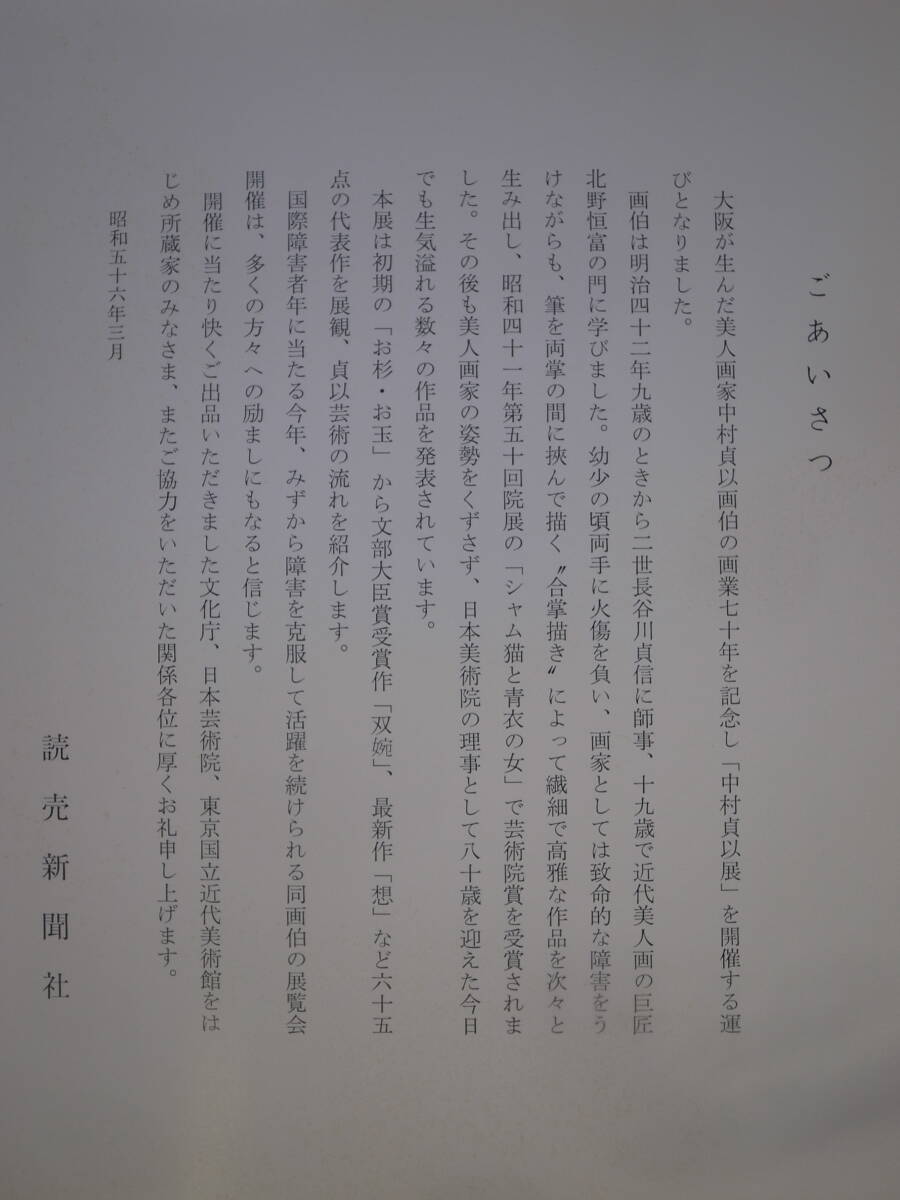 ごあいさつ
大阪が生んだ美人画家中村貞以画伯の画業七十年を記念し「中村貞以展」を開催する運
びとなりました。
画伯は明治四十二年九歳のときから二世長谷川貞信に師事、十九歳で近代美人画の巨匠
北野恒富の門に学びました。幼少の頃両手に火傷を負い、画家としては致命的な障害をう
けながらも、筆を両掌の間に挟んで描く〝合掌描き〟によって繊細で高雅な作品を次々と
生み出し、昭和四十一年第五十回院展の「シャム猫と青衣の女」で芸術院賞を受賞されま
した。その後も美人画家の姿勢をくずさず、日本美術院の理事として八十歳を迎えた今日
でも生気溢れる数々の作品を発表されています。
本展は初期の「お杉・お玉」から文部大臣賞受賞作「双婉」、最新作「想」など六十五
点の代表作を展観、貞以芸術の流れを紹介します。
国際障害者年に当たる今年、みずから障害を克服して活躍を続けられる同画伯の展覧会
開催は、多くの方々への励ましにもなると信じます。
開催に当たり快くご出品いただきました文化庁、日本芸術院、東京国立近代美術館をは
じめ所蔵家のみなさま、またご協力をいただいた関係各位に厚くお礼申し上げます。
昭和五十六年三月
読売新聞社